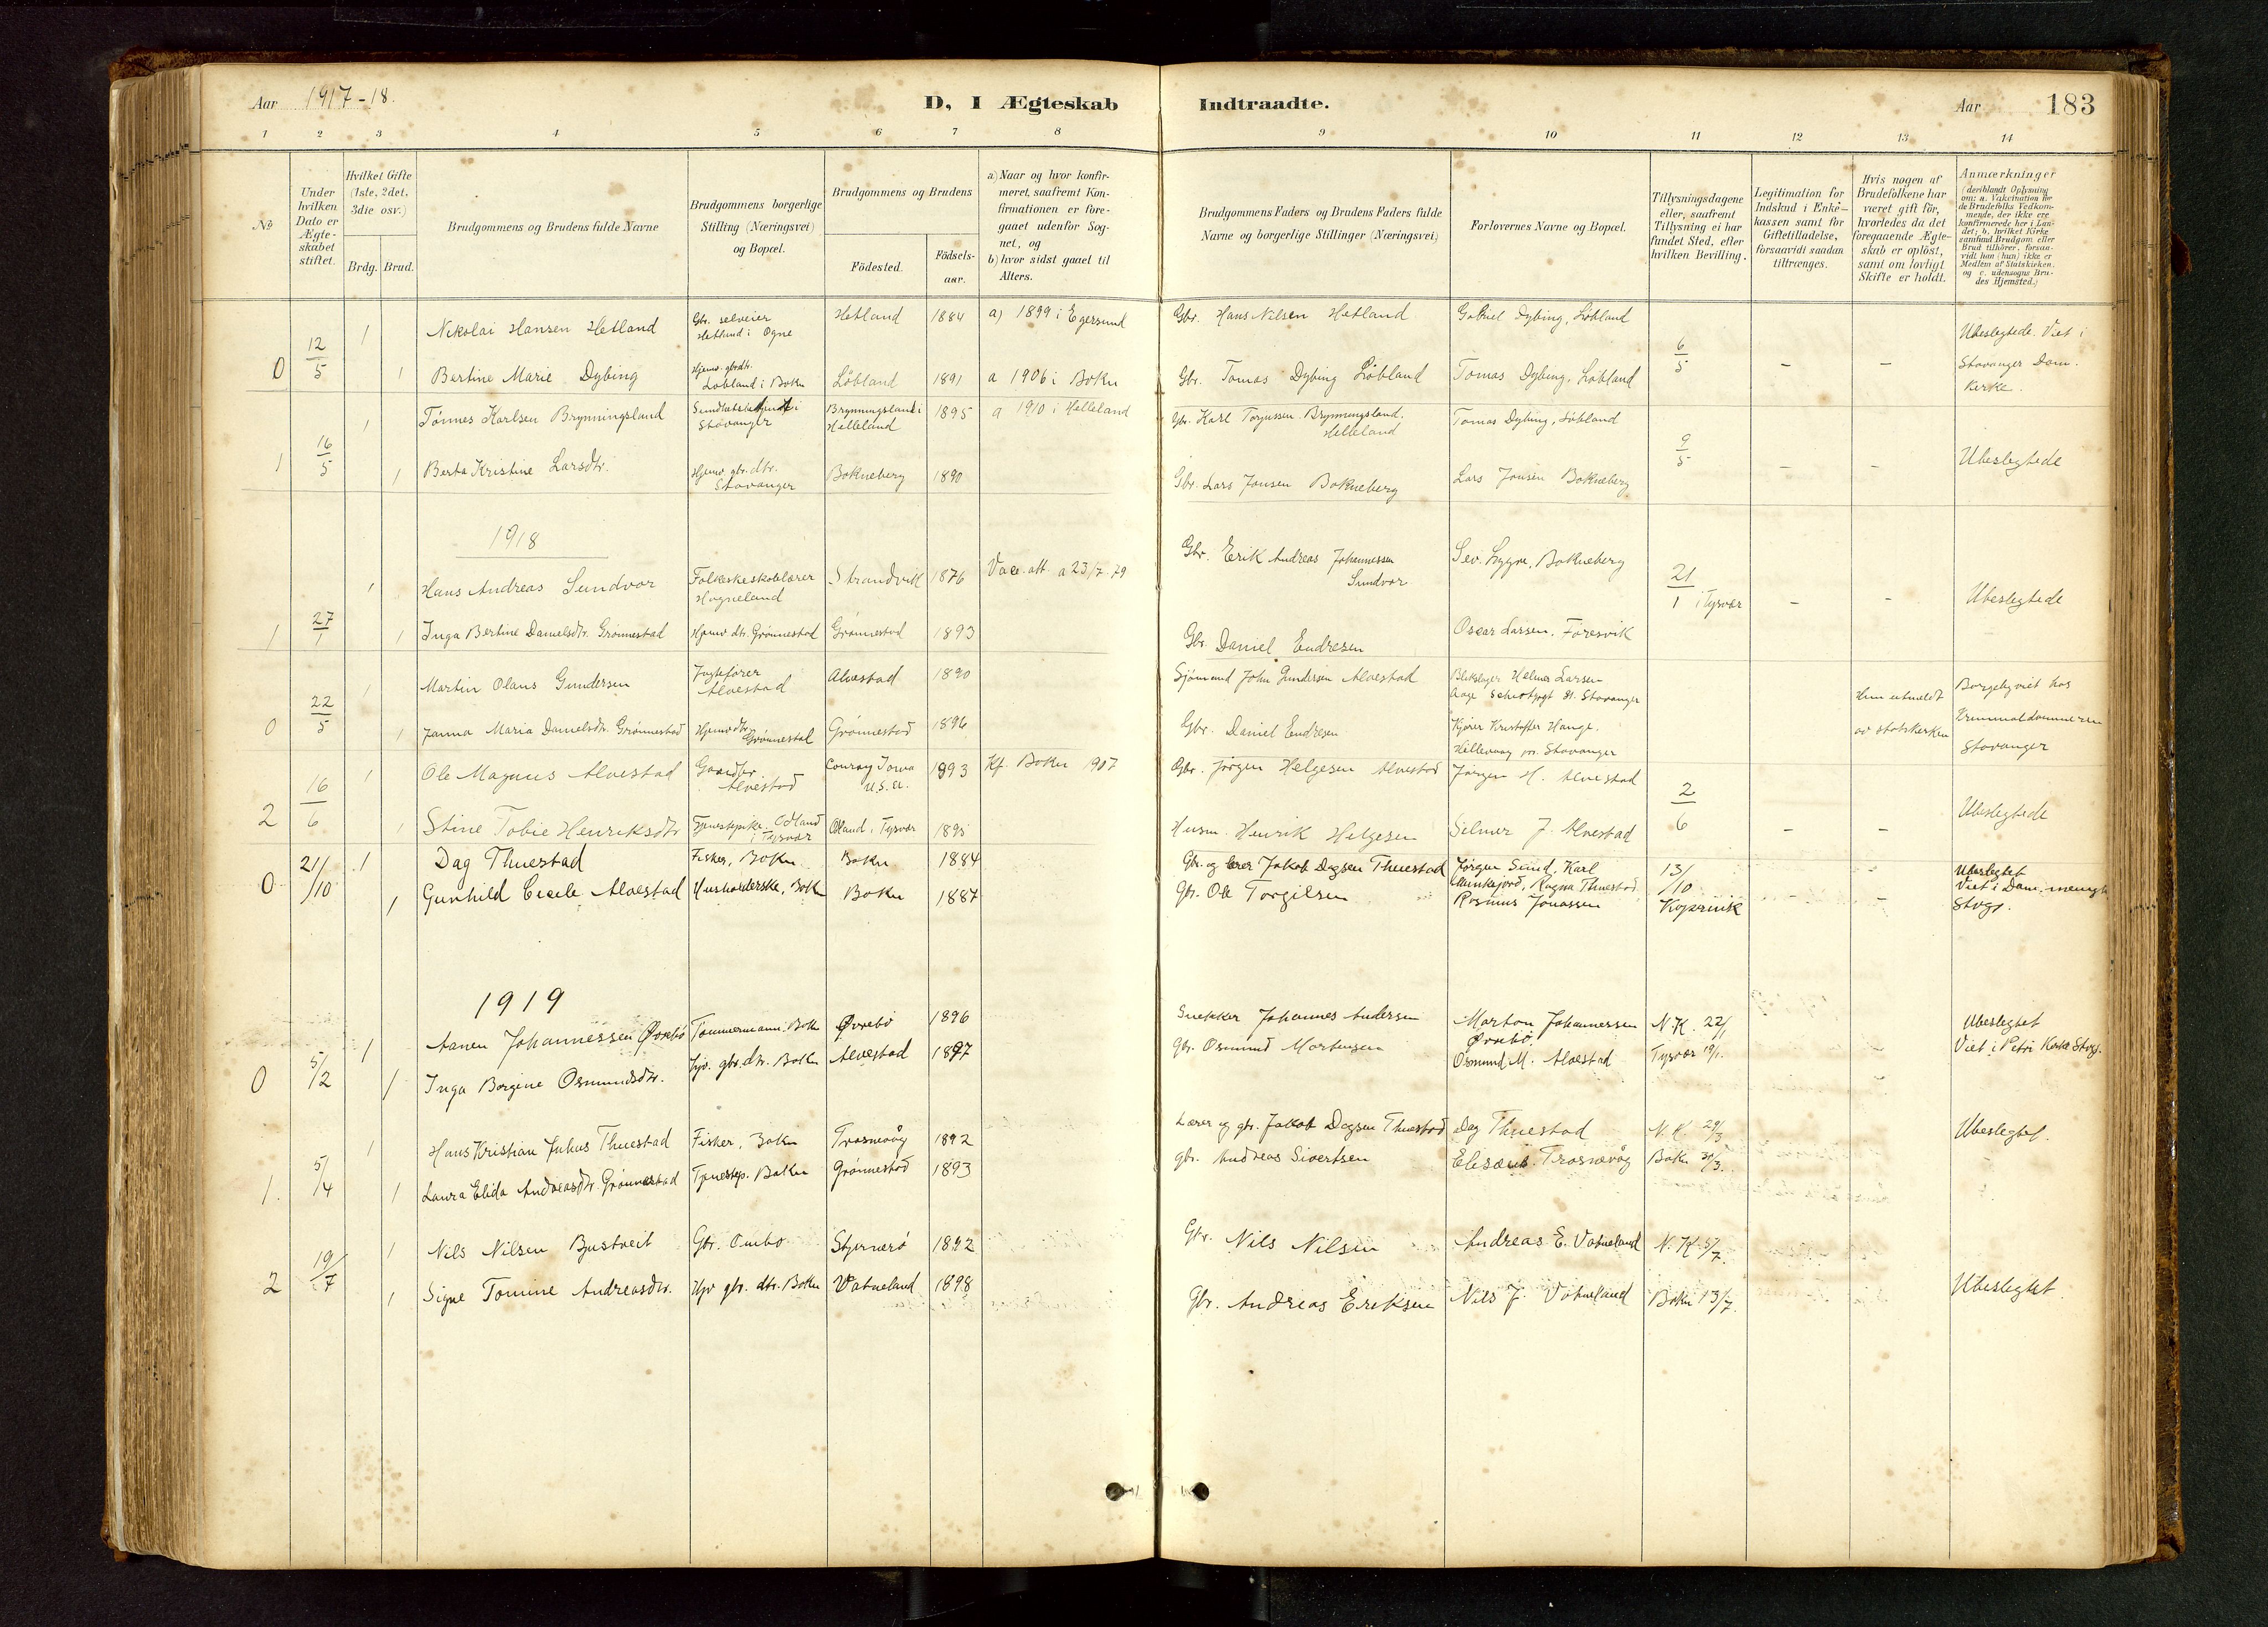 Aar 1917-18.
D, I Ægteskab Indtraadte.
Aar 183
1 2 3 4 5 6 7 8 9 10 11 12 13 14
No
Under hvilken Dato er Ægte-skabet stiftet.
Hvilket Gifte (1ste, 2det, 3die osv.)
Brdg. Brud.
Brudgommens og Brudens fulde Navne
Brudgommens borgerlige Stilling (Næringsvei) og Bopæl.
Brudgommens og Brudens
Födested.
Födsels-aar.
a) Naar og hvor konfir-meret, saafremt Kon-firmationen er fore-gaaet udenfor Sog-net, og
b) hvor sidst gaaet til Alters.
Brudgommens Faders og Brudens Faders fulde Navne og borgerlige Stillinger (Næringsvei)
Forlovernes Navne og Bopæl.
Tillysningsdagene eller, saafremt Tillysning ei har fundet Sted, efter hvilken Bevilling.
Legitimation for Indskud i Enke-kassen samt for Giftetilladelse, forsaavidt saadan tiltrænges.
Hvis nogen af Brudefolkene har været gift för, hvorledes da det foregaaende Ægte-skab er oplöst, samt om lovligt Skifte er holdt.
Anmærkninger (deriblandt Oplysning om: a. Vakcination for de Brudefolks Vedkom-mende, der ikke ere konfirmerede her i Lan-det; b. hvilket Kirke-samfund Brudgom eller Brud tilhörer, forsaa-vidt han (hun) ikke er Medlem af Statskirken, og c. udensogns Bru-des Hjemsted.)
1 Nikolai Hansen Hetland Gbr. selveier Hetland i Ogne Hetland 1884 a) 1899 i Egersund Gbr. Hans Nilsen Hetland Gabriel Dybing, Løbland
0 12/5 1 Bertine Marie Dybing Hjemv. gbrdtr. Løbland i Bokn Løbland 1891 a 1906 i Bokn Gbr. Tomas Dybing Løbland Tomas Dybing, Løbland 6/5 - - Ubeslegtede. Viet i Stavanger Dom-kirke.
1 Tönnes Karlsen Brynningsland Stavanger Brynningsland i Helleland 1895 a 1910 i Helleland Gbr. Karl Torgussen Brynningsland. Helleland Tomas Dybing, Løbland
1 16/5 1 Berta Kristine Larsdtr. Hjemv. gbr. dtr. Stavanger Bokneberg 1890 Gbr. Lars Jonsen Bokneberg Lars Jonsen Bokneberg 9/5 - - Ubeslegtede
1918
1 Hans Andreas Sundvor Folkeskoleskolelærer Hogneland Strandvik 1876 Vacc. att. a 23/7 79 Gbr. Erik Andreas Johannessen Sundvor Sev. Lygre, Bokneberg
1 27/1 1 Inga Bertine Danielsdtr. Grønnestad Hjemv. dtr. Grønnestad Grønnestad 1893 Gbr. Daniel Endresen Oscar Larsen, Føresvik 21/1 i Tysvær - - Ubeslegtede
1 Martin Olaus Gundersen Jagtefører Alvestad Alvestad 1890 Sjømand John Gundersen Alvestad Helmer Larsen Aage Stavanger
0 22/5 1 Janna Maria Danielsdtr. Grønnestad Hjemv dtr. Grønnestad Grønnestad 1896 Gbr. Daniel Endresen Kristoffer Hauge. Hillevaag pr. Stavanger Hun utmeldt av statskirken Borgelig viet hos Kriminaldommeren Stavanger
1 Ole Magnus Alvestad Gaardbr. Alvestad Conray Iowa U.S.A. 1893 Kf. Bokn 1907 Gbr. Jørgen Helgesen Alvestad Jørgen H. Alvestad
2 16/6 1 Stine Tobie Henriksdtr Tjenestepike Odland i Tysvær Odland i Tysvær 1895 Husm. Henrik Helgesen Silmer J. Alvestad 2/6 - - Ubeslegtede
1 Dag Thuestad Fisker, Bokn Bokn 1884 Gbr. og lærer Jakob Dagsen Thuestad Jørgen Sund, Karl
0 21/10 1 Gunhild Cecile Alvestad Husholderske, Bokn Bokn 1887 Gbr. Ole Torgilsen Munkejord, Ragna Thuestad Rasmus Jonassen 13/10 Kopervik - - Ubeslegtet Viet i Dom. menigh Stvgr.
1919
1 Aanen Johannessen Øvrebø Tømmermann, Bokn Øvrebø 1896 Snekker Johannes Andersen Morton Johannessen Øvrebø N.K. 22/1
0 5/2 1 Inga Borgine Osmundsdtr. Hjv. gbr. dtr. Bokn Alvestad 1897 gbr. Osmund Mortensen Osmund M. Alvestad Tysvær 19/1. - Ubeslegtet Viet i Petri Kirke Stvgr.
1 Hans Kristian Julius Thuestad Fisker, Bokn Trosnavåg 1892 Lærer og gbr. Jakob Dagsen Thuestad Dag Thuestad N.K. 29/3
1. 5/4 1 Laura Elida Andreasdtr. Grønnestad Tjenestep. Bokn Grønnestad 1893 gbr. Andreas Sivertsen Trosnavåg Bokn 30/3. Ubeslegtet.
1 Nils Nilsen Bjustveit Gbr. Ombo Stjernerø 1892 Gbr. Nils Nilsen Andreas E. Vatneland N.K. 5/7.
2 19/7 1 Signe Tomine Andreasdtr. Hjv gbr. dtr. Bokn Vatneland 1898 Gbr. Andreas Eriksen Nils J. Vatneland Bokn 13/7. Ubeslegtet.